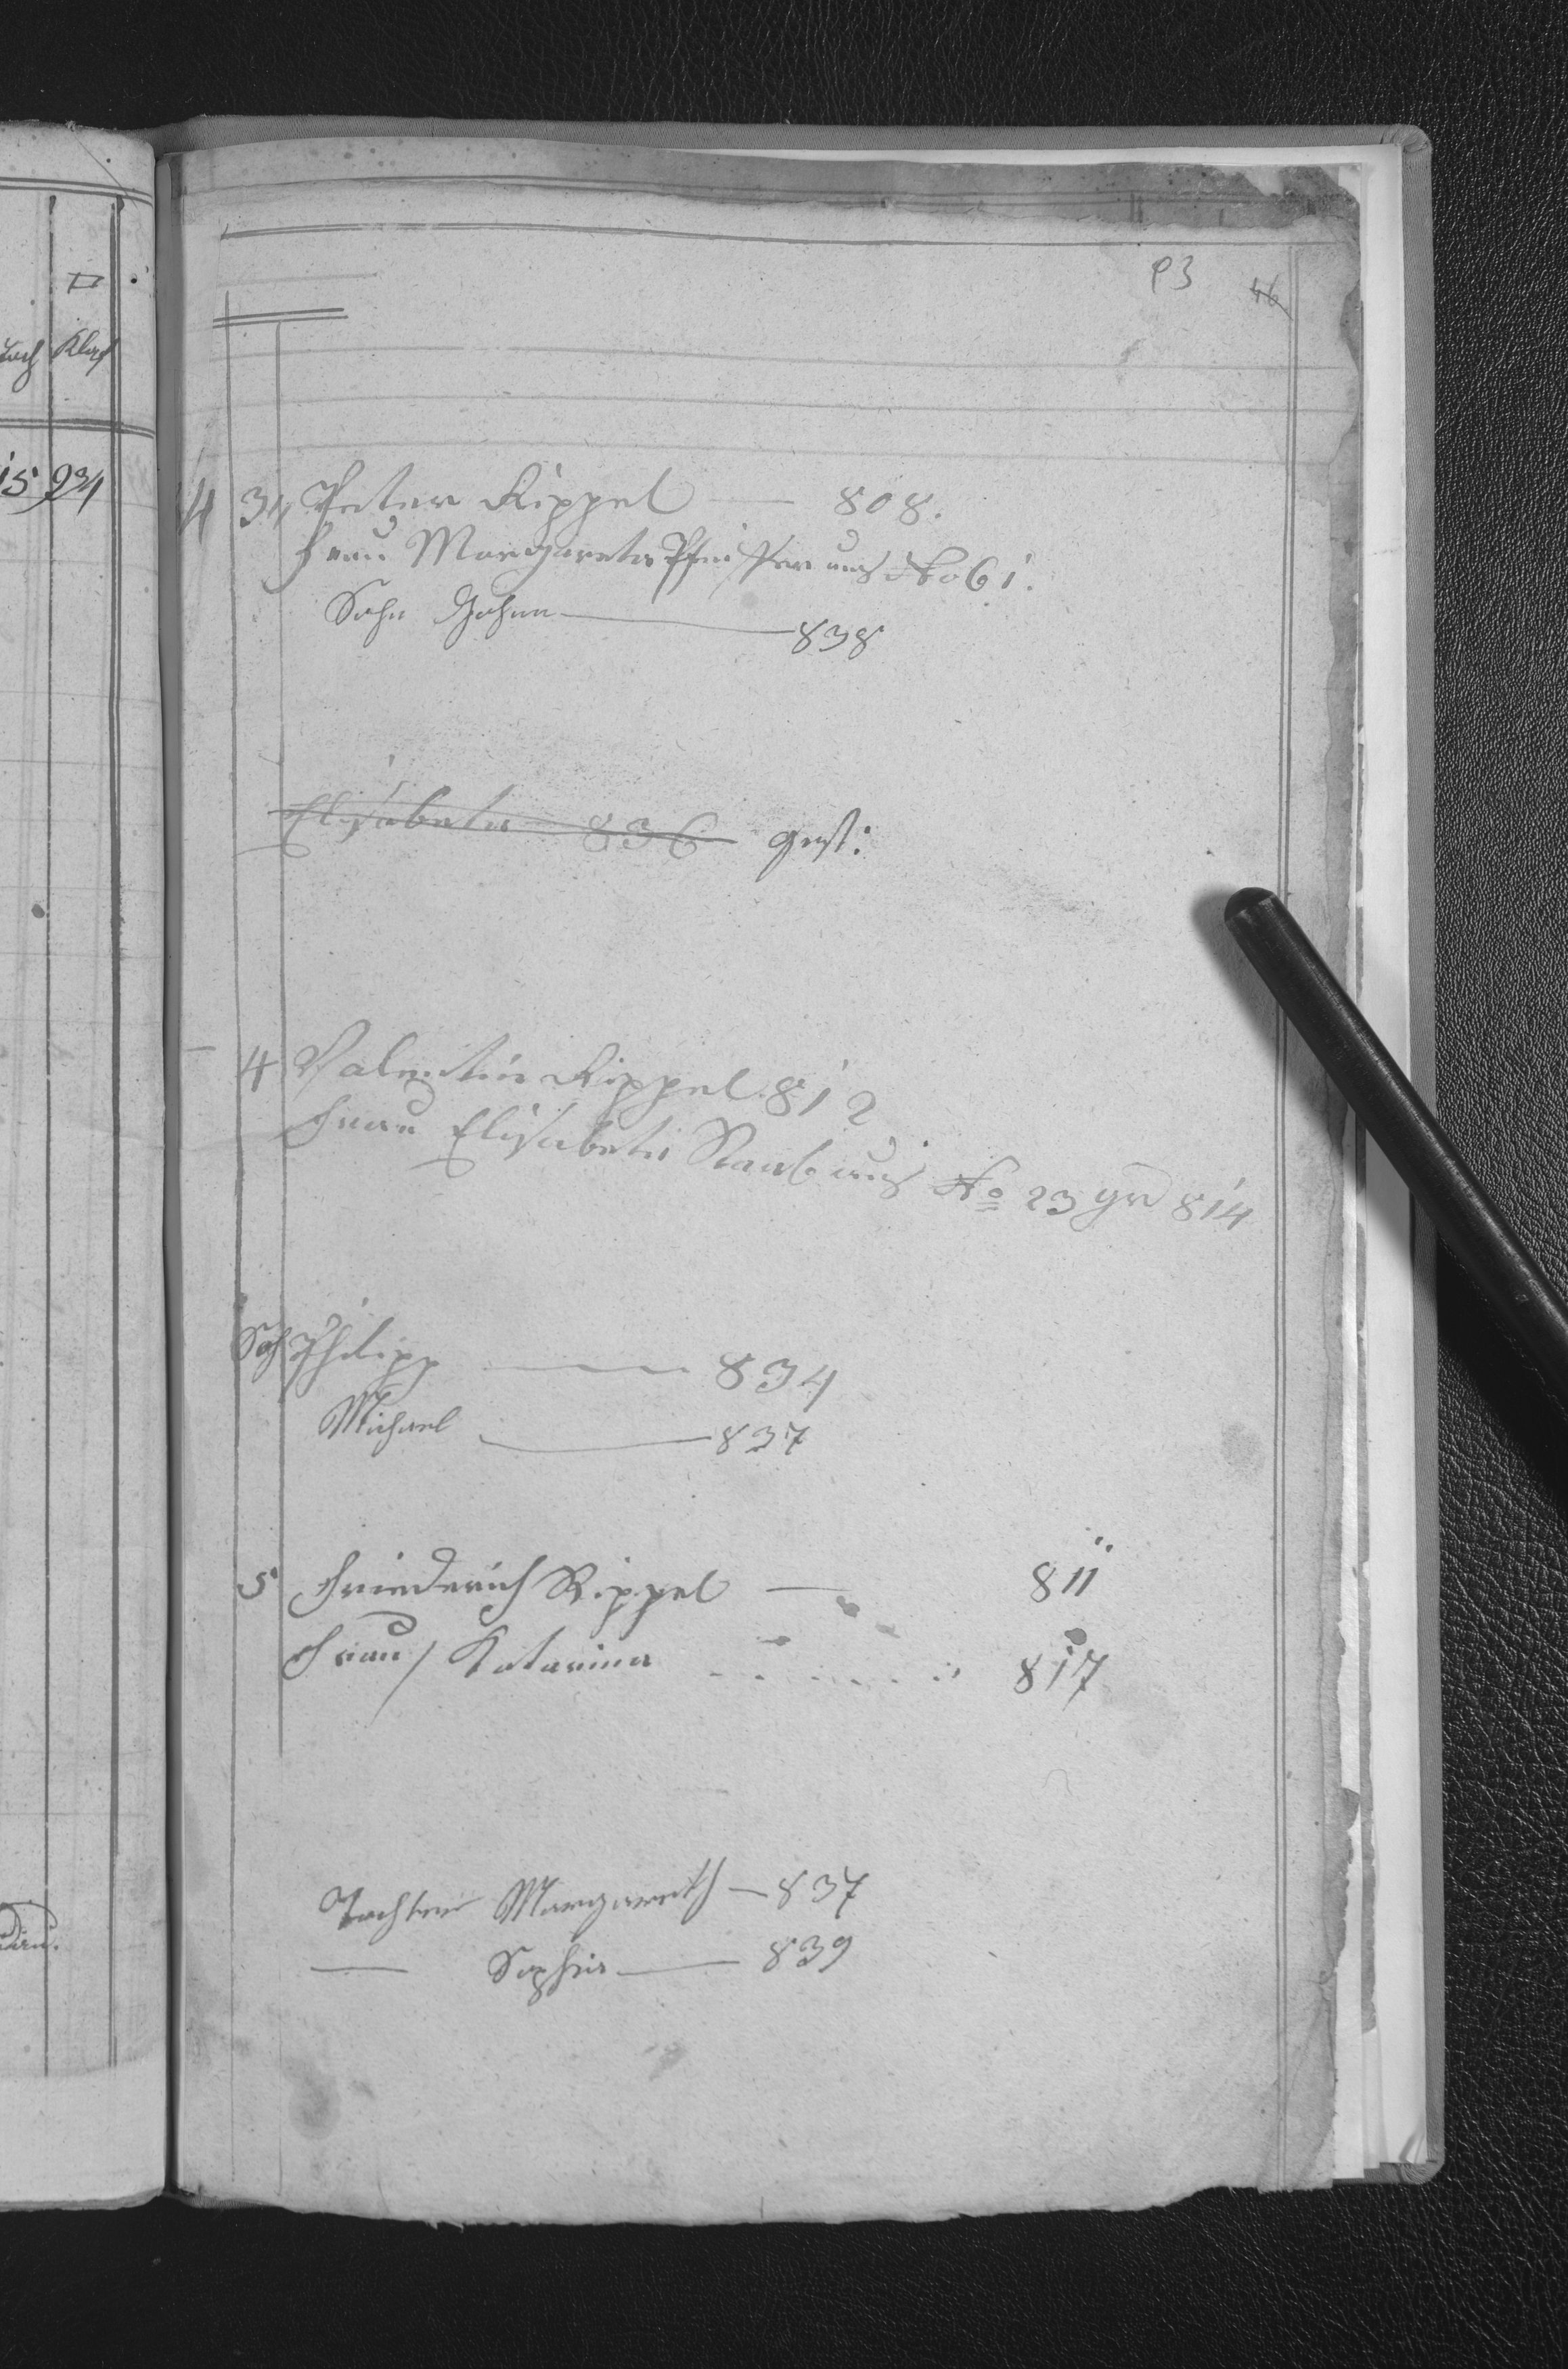 93 46
4 34 Peter Rippel — 808.
Frau Margareta Pfeiffer aus No 61.
Sohn Johann — 838
Elisabeta 836 gest:
4 Valentin Rippel 812
Frau Elisabeta Staab aus No 23 gb 814
Soh Philipp — 834
Michael — 837
5 Friederich Rippel — 811
Frau / Katarina 817
Tochter Margareth — 837
— Sophia — 839
Klaf
15 934